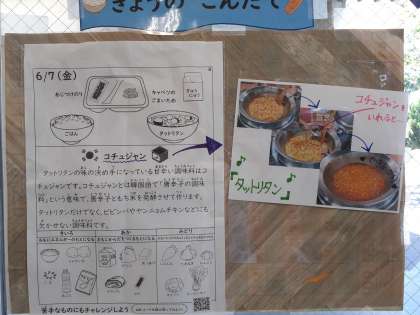 きょうの こんだて
6/7(金)
あじつけのり
キャベツの
ごまいため
ごはん
タットリタン
コチュジャン
タットリタンの味の決め手になっている甘辛い調味料はコ
チュジャンです。コチュジャンとは韓国語で「唐辛子の調味
料」という意味で、唐辛子ともち米を発酵させて作ります。
タットリタンだけでなく、ビビンバやヤンニョムチキンなどにも
欠かせない調味料です。
きいろ
あか
みどり
苦手なものにもチャレンジしよう
コチュジャンを
いれると…
♪
「タットリタン」
♪